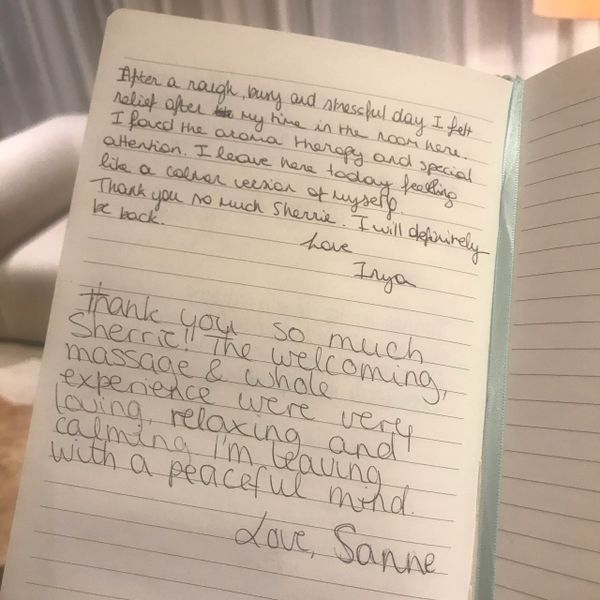 After a rough, busy and stressful day I felt
relief after my time in the room here.
I loved the aroma therapy and special
attention. I leave here today feeling
like a calmer version of myself.
Thank you so much Sherrie. I will definitely
be back.
Love
Inya
Thank you so much
Sherrie! The welcoming,
massage & whole
experience were very
loving, relaxing and
calming I'm leaving
with a peaceful mind.
Love, Sanne